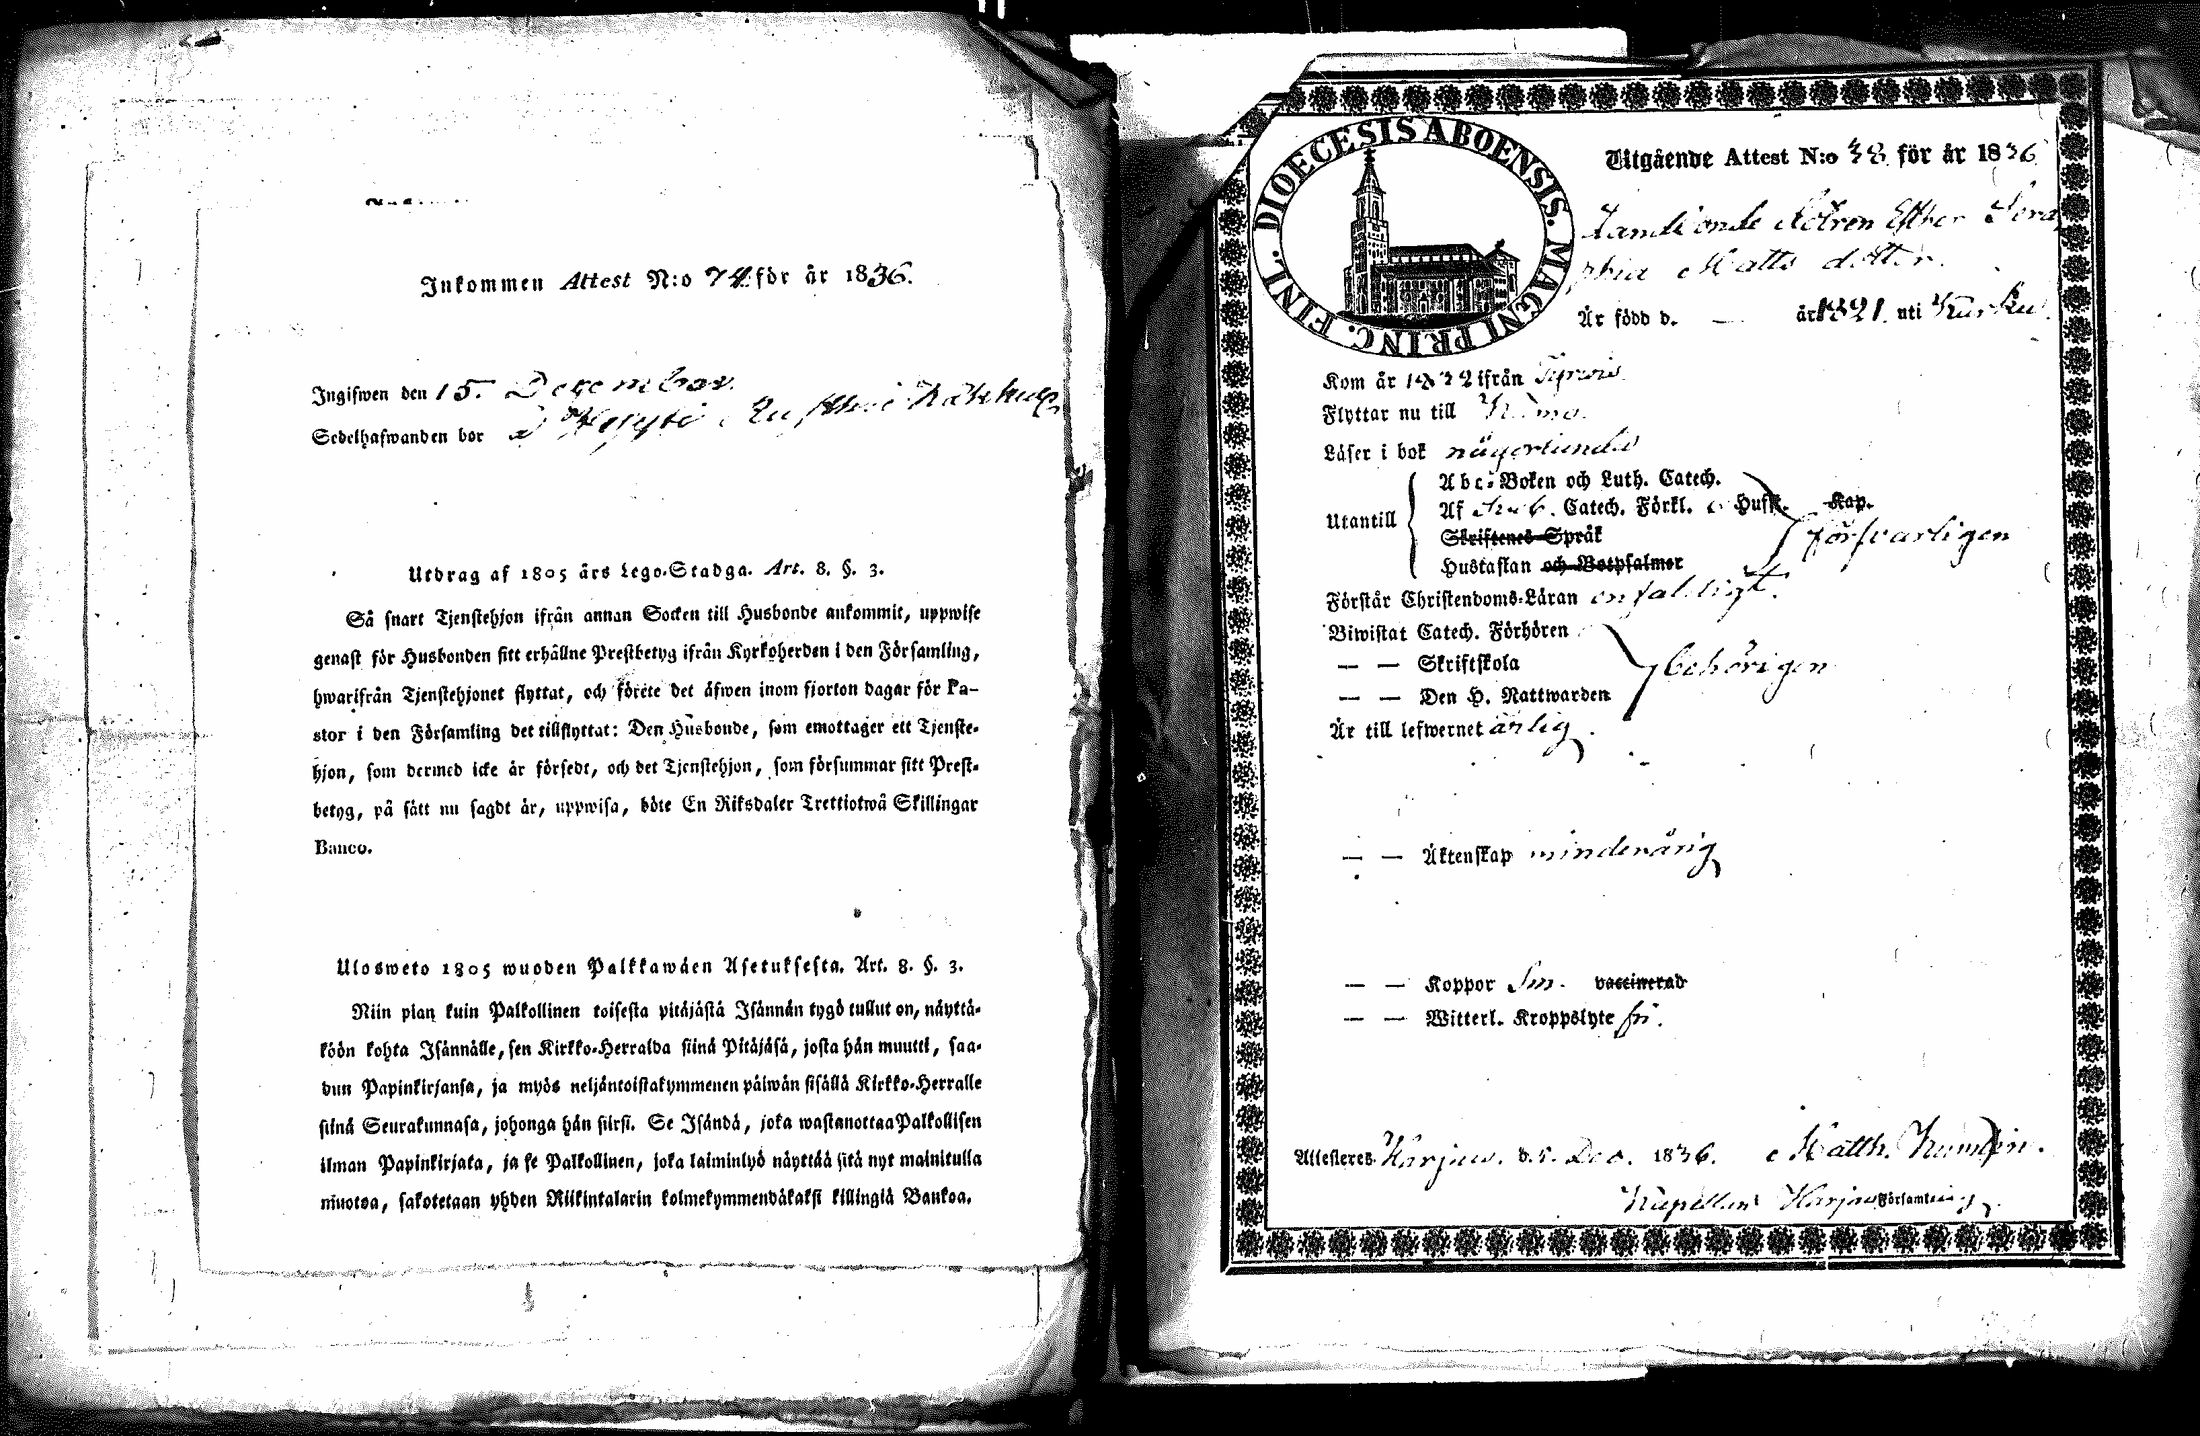 Inkommen Attest N:o 74 för år 1836.
Ingifwen den 15. December
Sedelhafwanden bor
Utdrag af 1805 års Lego-Stadga. Art. 8. §. 3.
Så snart Tjenstehjon ifrån annan Socken till Husbonde ankommit, uppwise
genast för Husbonden sitt erhållne Prestbetyg ifrån Kyrkoherden i den Församling,
hwarifrån Tjenstehjonet flyttat, och förete det äfwen inom fjorton dagar för Pa-
stor i den Församling det tillflyttat: Den Husbonde, som emottager ett Tjenste-
hjon, som dermed icke är försedt, och det Tjenstehjon, som försummar sitt Prest-
betyg, på sätt nu sagdt är, uppwisa, böte En Riksdaler Trettiotwå Skillingar
Banco.
Ulosweto 1805 wuoden Palkkawäen Asetuksesta. Art. 8. §. 3.
Niin pian kuin Palkollinen toisesta pitäjästä Isännän tygö tullut on, näyttä-
köön kohta Isännälle, sen Kirkko-Herralda siinä Pitäjäsä, josta hän muutti, saa-
dun Papinkirjansa, ja myös neljäntoistakymmenen päiwän sisällä Kirkko-Herralle
siinä Seurakunnasa, johonga hän siirsi. Se Isändä, joka wastanottaa Palkollisen
ilman Papinkirjata, ja se Palkollinen, joka laiminlyö näyttää sitä nyt mainitulla
muotoa, sakotetaan yhden Riikintalarin kolmekymmendäkaksi killingiä Bankoa.
DIOECESIS ABOENSIS. MAGNI PRINC. FINL.
Utgående Attest N:o 38 för år 1836
Esther Sera
phia Matts dotter.
Är född d. — år 1821 uti Kurku.
Kom år 1832 ifrån Tyrvis
Flyttar nu till Kumo.
Läser i bok någorlunda
Utantill
Abc-Boken och Luth. Catech.
Af Catech. Förkl. Husf. Kap.
Skriftenes Språk
Hustaflan och Botpsalmer
försvarligen
Förstår Christendoms-Läran enfaldigt.
Biwistat Catech. Förhören
— — Skriftskola
— — Den H. Nattwarden
behörigen
Är till lefwernet ärlig.
— — Äktenskap minderårig
— — Koppor vaccinerad
— — Witterl. Kroppslyte fri.
Attesteres Karjau. d. 5. Dec. 1836. Matth.
Kapellan i Karjau Församling.